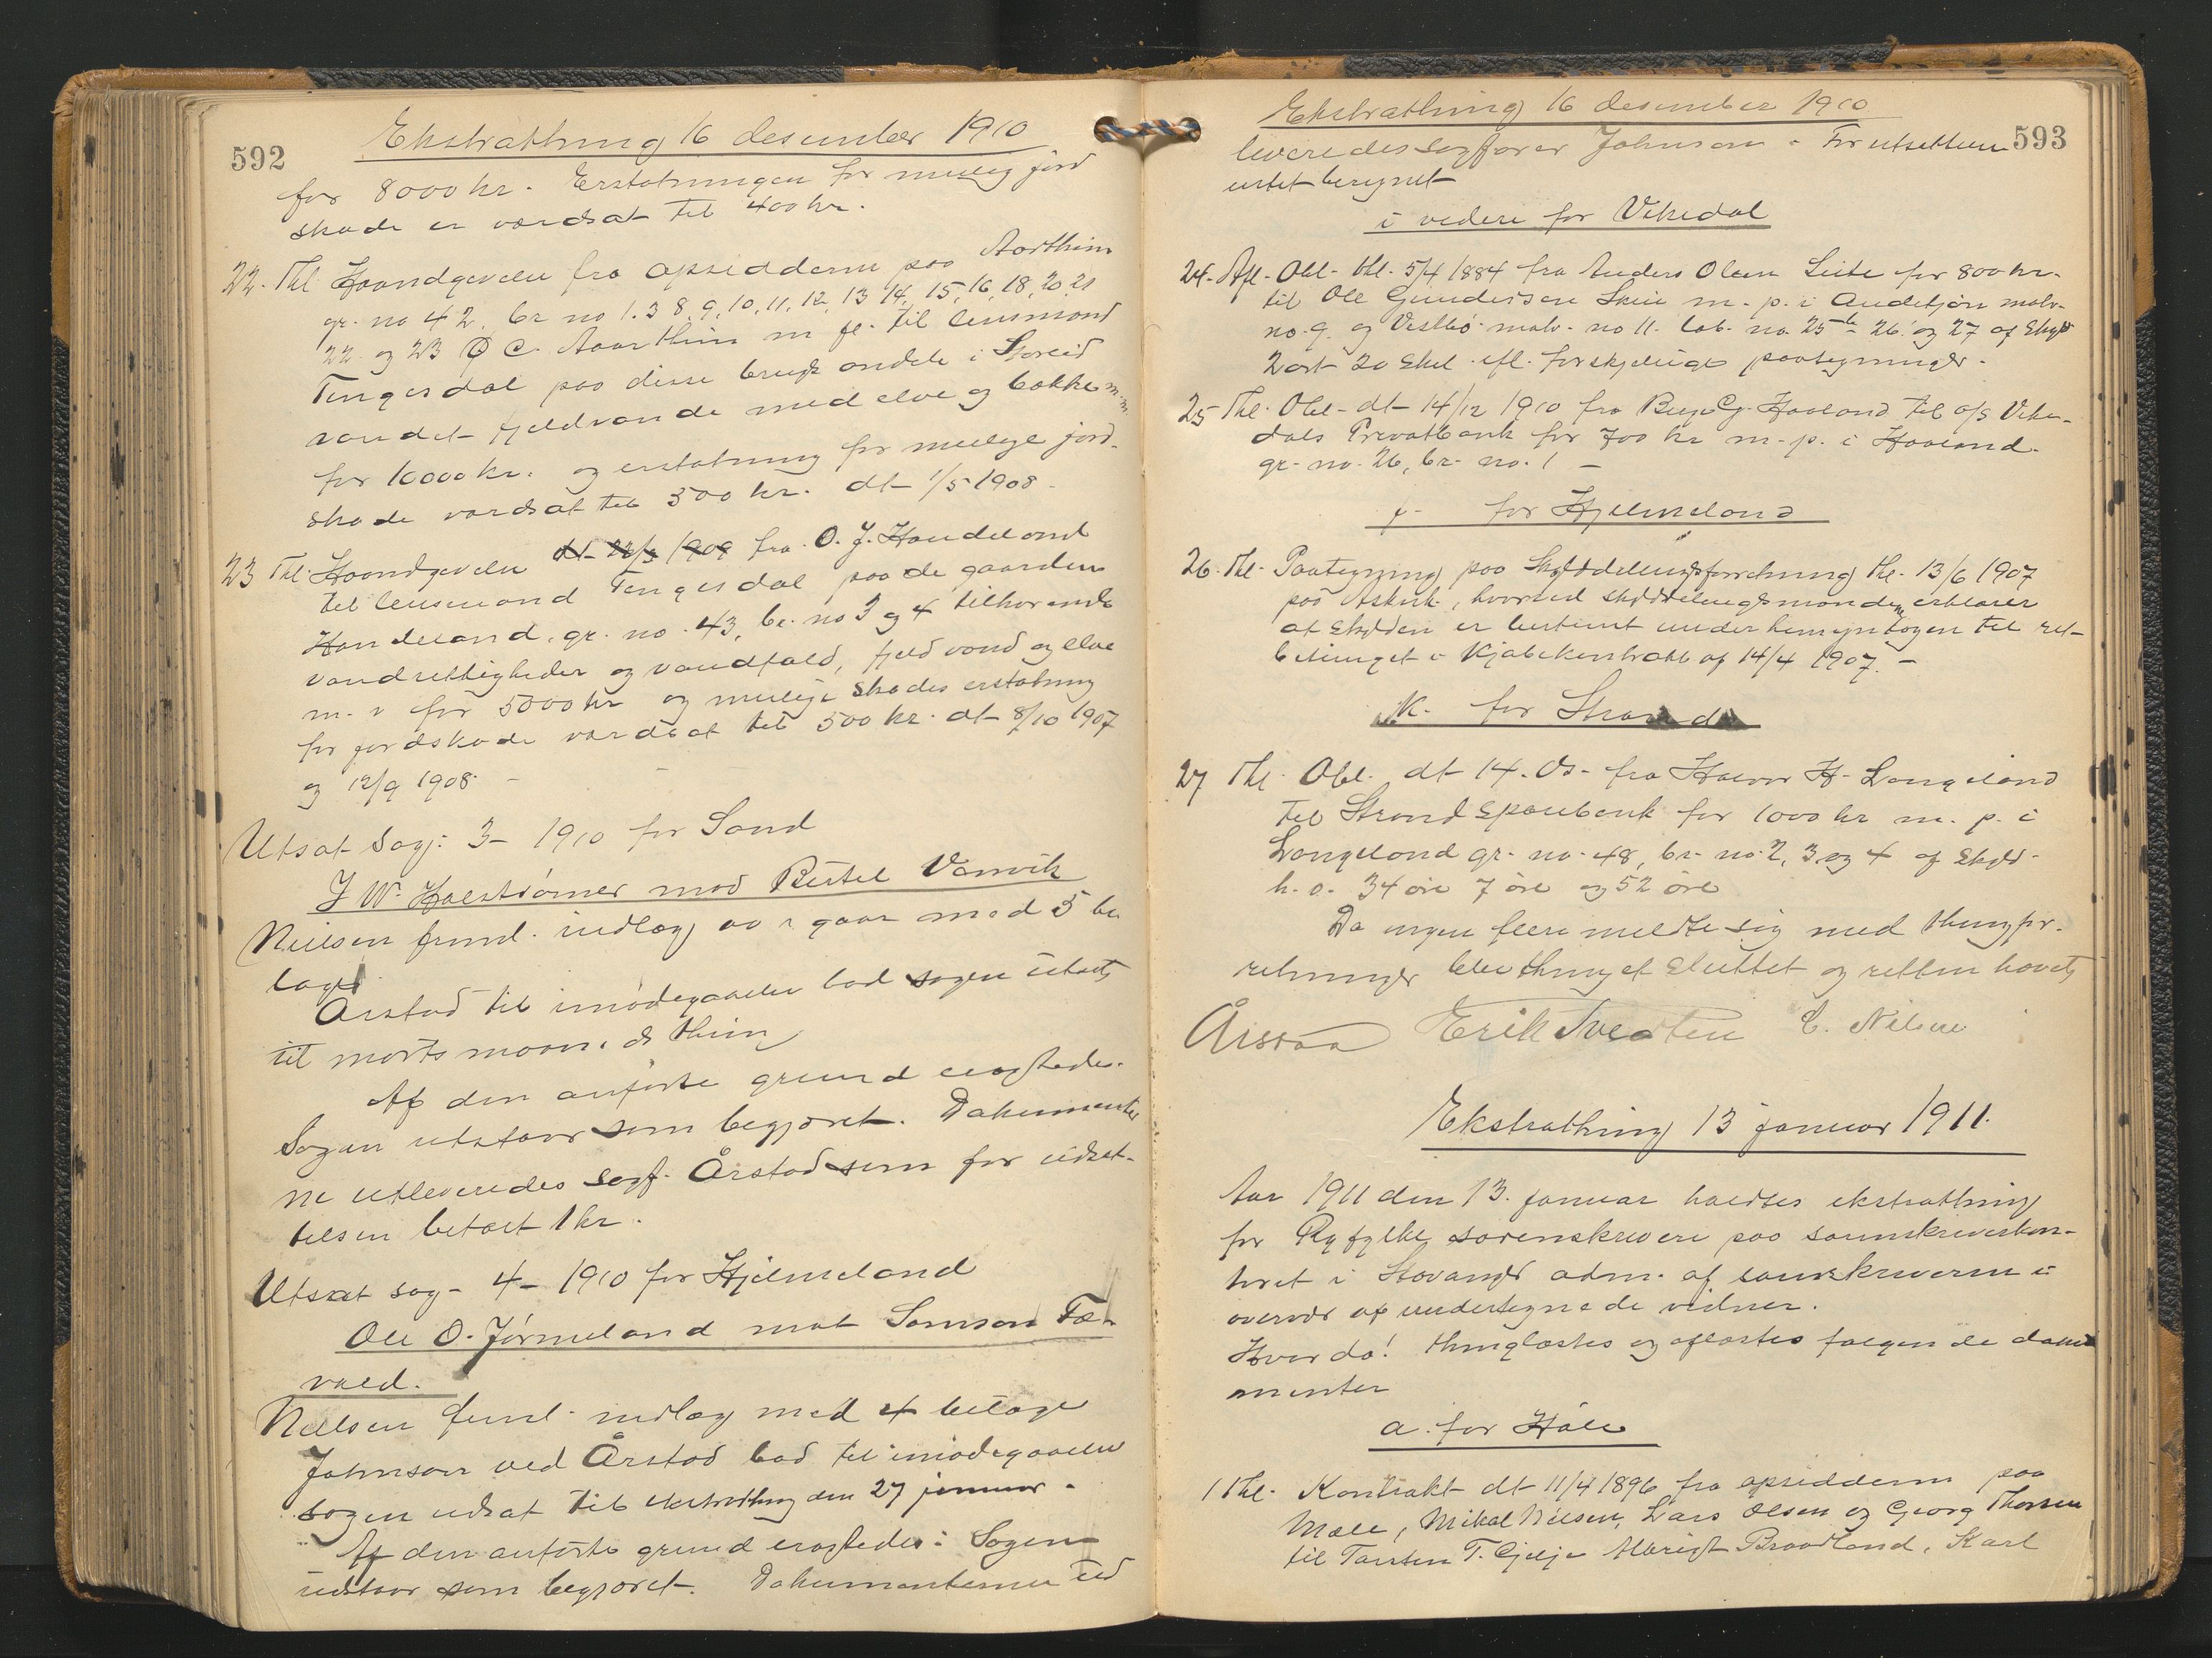 592
Ekstrathing 16 desember 1910
for 8000 kr. Erstatningen for mulig jord
skade er værdsat til 400 kr.
22. Thl. Haandgivelse fra opsidderne paa Aarthun
gr. no 42, br no 1. 3 8, 9, 10, 11, 12, 13 14, 15, 16, 18, 20, 21
22 og 23 Aarthun m fl. til lensmand
Tengesdal paa disse bruk andele i
vandet fjeldvande med elve og bække m.m.
for 10000 kr. og erstatning for mulige jord-
skade værdsat til 500 kr. dt 1/5 1908
23 Thl. Haandgivelse dt 28/3 1909 fra O. J. Handeland
til lensmand Tengesdal paa de gaarden
Handeland, gr. no. 43, br. no 3 og 4 tilhørende
vandrettigheder og vandfald, fjeldvand og elve
m. v for 5000 kr og mulige skades erstatning
for jordskade værdsat til 500 kr. dt 8/10 1907
og 12/9 1908. –
Utsat sag: 3 – 1910 for Sand
J W. mod Bertel Vanvik
Nielsen freml. indlæg av i gaar med 5 bi
lage
Årstad til imødegaaelse bad sagen utsat
til marts maaneds thing
Af den anførte grund eragtedes.
Sagen utstaar som begjæret. Dokumente
ne utleveredes sagf. Årstad som for udsæt-
telsen betalt 1 kr.
Utsat sag – 4 – 1910 for Hjelmeland
Ole O. Jørmeland mot Samson Fæ-
vold.
Nielsen freml. indlæg med 4 bilage
Johnson ved Årstad bad til imødegaaelse
sagen udsat til ekstrathing den 27 januar.
Af den anførte grund eragtedes: Sagen
udstaar som begjæret. Dokumenterne ud
593
Ekstrathing 16 desember 1910
leveredes sagfører Johnson. For utsettelsen
intet beregnet
i videre for Vikedal
24. Afl. Obl. thl. 5/4 1884 fra Anders Olsen Leite for 800 kr.
til Ole Gundersen m. p. i matr.
no. 9. og Vestbø matr. no 11. løb. no. 25 26 og 27 af skyld
2 ort 20 skil. efl. forskjellige paategninger.
25 Thl. Obl. dt 14/12 1910 fra Haaland til a/s Vike-
dals Privatbank for 700 kr m. p. i Haaland
gr. no. 26, br. no. 1 –
j. for Hjelmeland
26. Thl. Paategning paa Skylddelingsforretning thl. 13/6 1907
paa Askvik, hvorved skylddelingsmændene erklærer
at skylden er bestemt under hensyntagen til ret-
betinget i Kjøbekontrakt af 14/4 1907. –
k. for Strand
27 Thl. Obl. dt 14. ds. fra Halvor H. Langeland
til Strand Sparebank for 1000 kr m. p. i
Langeland gr. no. 48, br. no. 2, 3 og 4 af skyld
h. o. 34 øre 7 øre og 52 øre
Da ingen flere meldte sig med thingfor-
retninger blev thinget sluttet og retten hævet
Årstad Erik Tveiten E. Nilsen
Ekstrathing 13 januar 1911.
Aar 1911 den 13. januar holdtes ekstrathing
for Ryfylke sorenskriveri paa sorenskriverkon-
toret i Stavanger adm. af sorenskriveren i
overvær af undertegnede vidner.
Hvor da! thinglæstes og aflæstes følgende doku
menter
a. for Høle
1 Thl. Kontrakt dt 11/4 1896 fra opsidderne paa
Mæle, Mikal Nilsen, Lars Olsen og Georg Thorsen
til Torsten T. Gjilje Albrigt Braadland, Karl